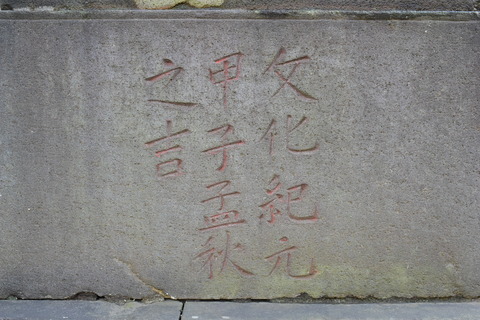 文化紀元
甲子孟秋
之吉